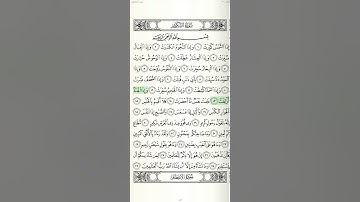 سورة التكوير
بسم الله الرحمن الرحيم
إذا الشمس كورت ١ وإذا النجوم انكدرت ٢ وإذا الجبال
سيرت ٣ وإذا العشار عطلت ٤ وإذا الوحوش حشرت
٥ وإذا البحار سجرت ٦ وإذا النفوس زوجت ٧ وإذا
الموءودة سئلت ٨ بأي ذنب قتلت ٩ وإذا الصحف نشرت
١٠ وإذا السماء كشطت ١١ وإذا الجحيم سعرت ١٢ وإذا الجنة
أزلفت ١٣ علمت نفس ما أحضرت ١٤ فلا أقسم بالخنس ١٥
الجوار الكنس ١٦ والليل إذا عسعس ١٧ والصبح إذا تنفس
١٨ إنه لقول رسول كريم ١٩ ذي قوة عند ذي العرش مكين
٢٠ مطاع ثم أمين ٢١ وما صاحبكم بمجنون ٢٢ ولقد رءاه بالأفق
المبين ٢٣ وما هو على الغيب بضنين ٢٤ وما هو بقول شيطان رجيم
٢٥ فأين تذهبون ٢٦ إن هو إلا ذكر للعالمين ٢٧ لمن شاء منكم
أن يستقيم ٢٨ وما تشاءون إلا أن يشاء الله رب العالمين ٢٩
سورة الانفطار